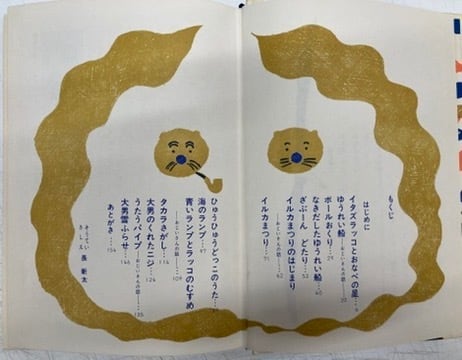 もくじ
はじめに
イタズラッコとおなべの星…8
ゆうれい船……20
ボールおくり
なきだしたゆうれい船…40
ざぶーん どたり…52
イルカまつりのはじまり
イルカまつり……71
ひゅうひゅうどっこのうた…
海のランプ…97
青いランプとラッコのむすめ
タカラさがし…114
大男のくれたニジ…124
うたうパイプ
大男雪ふらせ…146
あとがき…154
そうてい
さしえ 長 新太